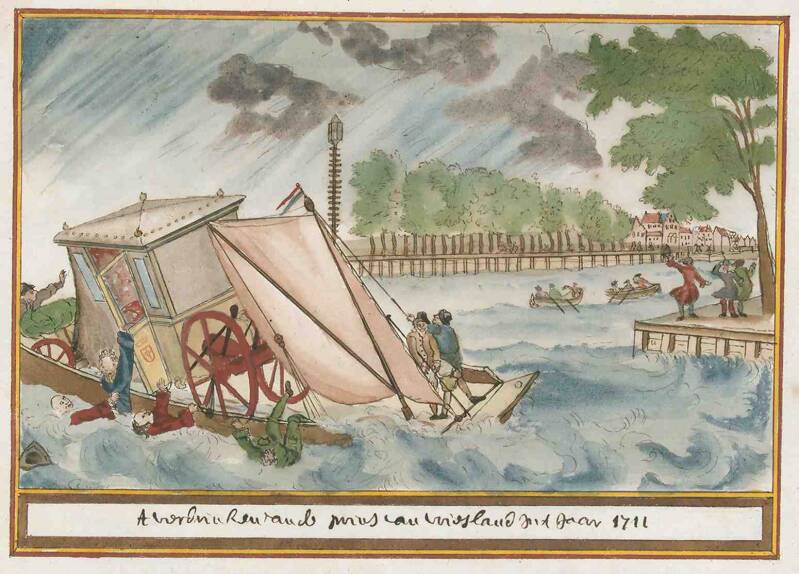 t verdrinken vande prins van vriesland int Jaar 1711